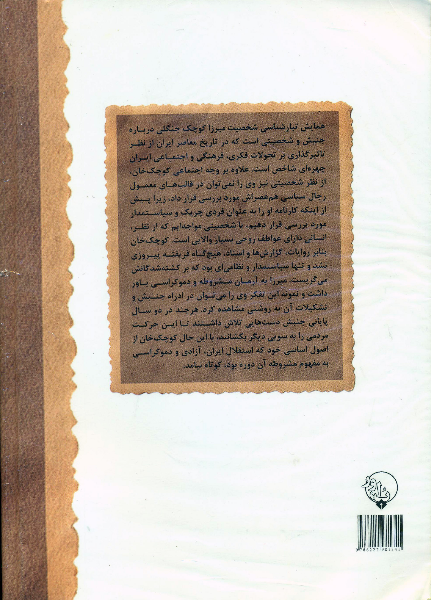 همایش تبارشناسی شخصیت میرزا کوچک جنگلی درباره
جنبش و شخصیتی است که در تاریخ معاصر ایران از نظر
تاثیرگذاری بر تحولات فکری، فرهنگی و اجتماعی ایران
چهره‌ای شاخص است. علاوه بر وجه اجتماعی کوچک‌خان،
از نظر شخصیتی نیز وی را نمی‌توان در قالب‌های معمول
رجال سیاسی هم‌عصراش مورد بررسی قرار داد. زیرا پیش
از اینکه کارنامه او را به عنوان فردی چریک و سیاستمدار
مورد بررسی قرار دهیم، با شخصیتی مواجه‌ایم که از نظر
انسانی دارای عواطف روحی بسیار والایی است. کوچک‌خان
بنابر روایات، گزارش‌ها و اسناد، هیچ‌گاه فریفته پیروزی
نشد و تنها سیاستمدار و نظامی‌ای بود که بر کشته‌شدگانش
می‌گریست. میرزا به آرمان مشروطه و دموکراسی باور
داشت و نمونه این تفکر وی را می‌توان در اداره جنبش و
تشکیلات آن به روشنی مشاهده کرد. هرچند در دو سال
پایانی جنبش دست‌هایی تلاش داشتند تا این حرکت
مردمی را به سویی دیگر بکشانند، با این حال کوچک‌خان از
اصول اساسی خود که استقلال ایران، آزادی و دموکراسی
به مفهوم مشروطه آن دوره بود، کوتاه نیامد.